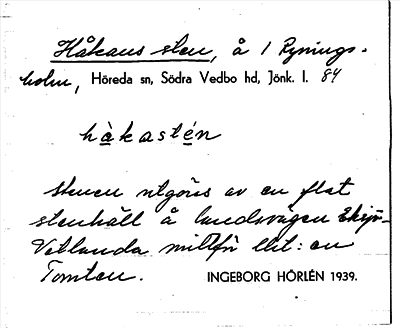 Håkans sten, å 1 Rynings-
holm, Höreda sn, Södra Vedbo hd, Jönk. l. 84
hàkastén
Stenen utgöres av en flat
stenhäll å landsvägen Eksjö-
Vetlanda mittför lht: en
Tomten.
INGEBORG HÖRLÉN 1939.